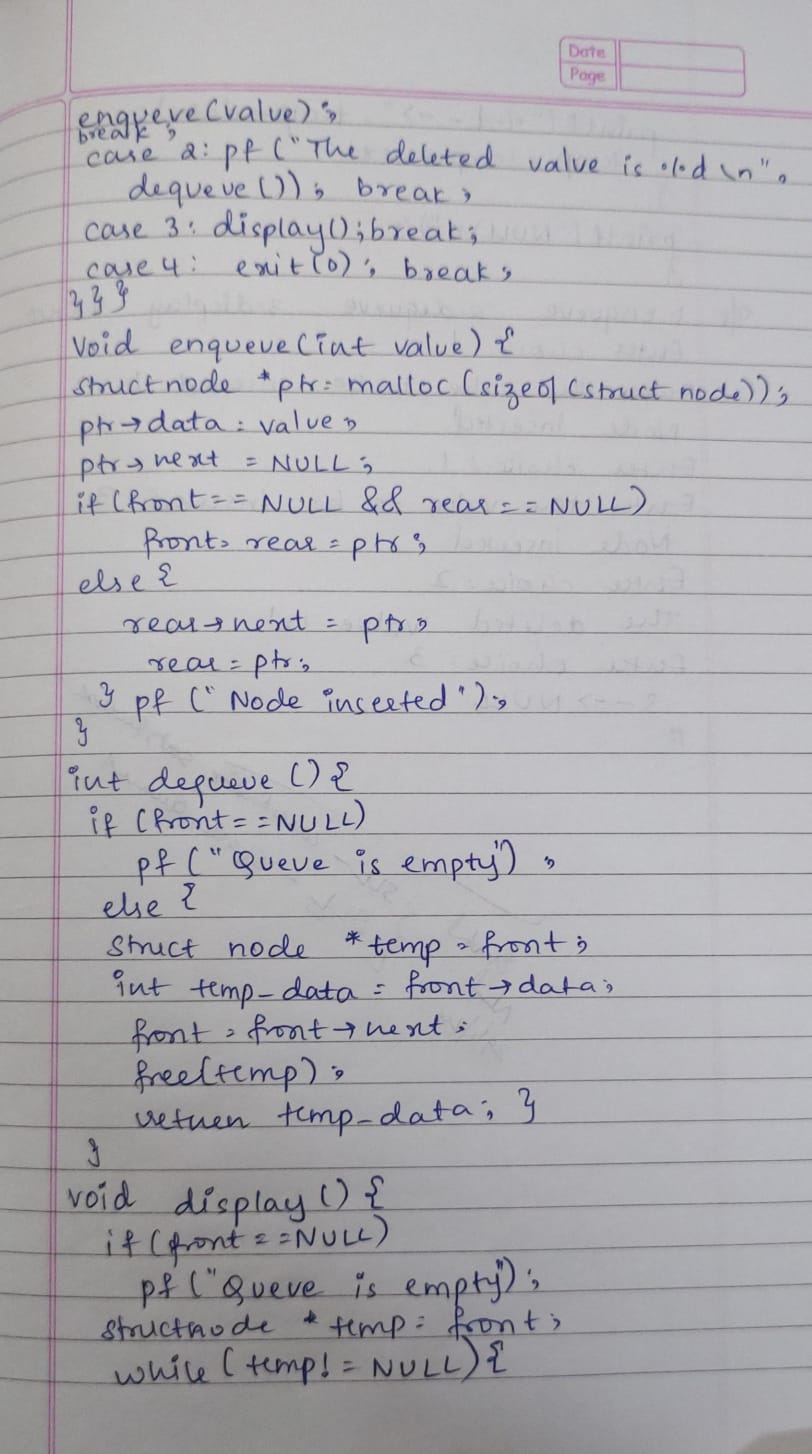 Date
Page
enqueue(value);
break;
case 2: pf("The deleted value is %d \n",
dequeue()); break;
case 3: display(); break;
case 4: exit(0); break;
}}}
Void enqueue(int value) {
struct node *ptr = malloc(sizeof(struct node));
ptr→data = value;
ptr→next = NULL;
if(front == NULL && rear == NULL)
front = rear = ptr;
else {
rear→next = ptr;
rear = ptr;
} pf ("Node inserted");
}
int dequeue () {
if (front == NULL)
pf ("Queue is empty");
else {
struct node *temp = front;
int temp_data = front→data;
front = front→next;
free(temp);
return temp_data; }
}
void display () {
if (front == NULL)
pf ("Queue is empty");
struct node *temp = front;
while (temp != NULL) {